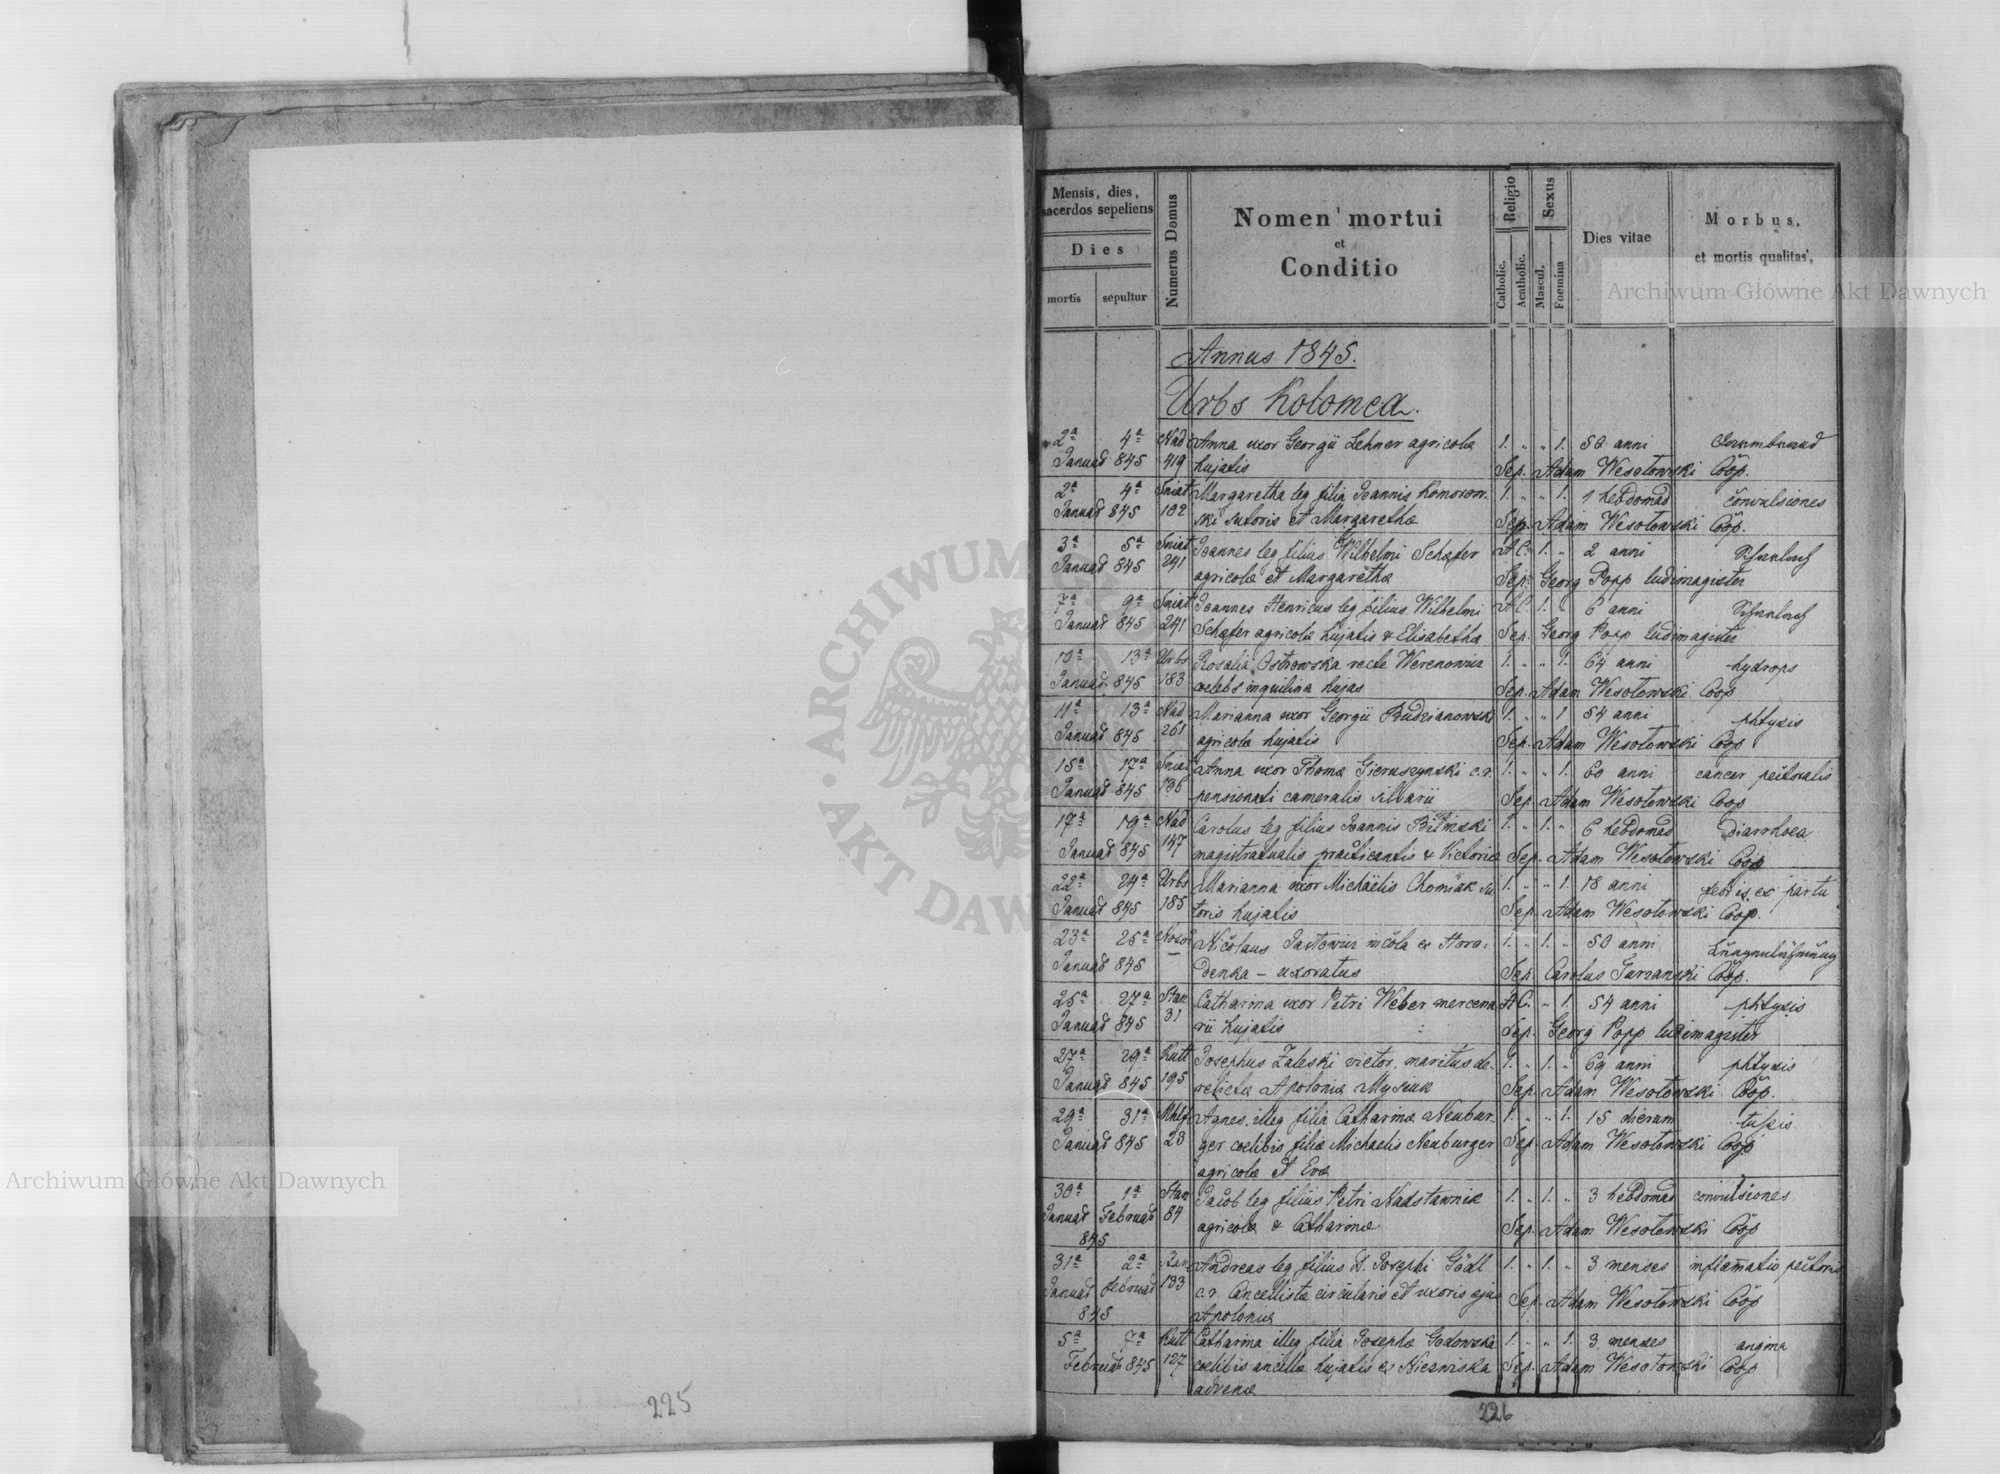 Mensis, dies,
sacerdos sepeliens
Dies
mortis
sepultur
Numerus Domus
Nomen mortui
et
Conditio
Religio
Catholic.
Acatholic.
Sexus
Mascul.
Foemina
Dies vitae
Morbus,
et mortis qualitas,
Archiwum Główne Akt Dawnych
Annus 1845.
Urbs Kolomea.
2ª 4ª Nad Anna uxor Georgii Lehner agricolæ 1. „ „ 1. 50 anni
Januar 845 419 hujatis Sep. Adam Wesołowski Coop.
2ª 4ª Sniat Margaretha leg filia Joannis Komorow- 1. „ „ 1. 1 hebdomad convulsiones
Januar 845 102 ski sutoris et Margarethæ Sep. Adam Wesołowski Coop.
3ª 5ª Sniat Joannes leg filius Wilhelmi Schafer A.C. 1. „ 2 anni
Januar 845 241 agricolæ et Margarethæ Sep. Georg Popp ludimagister
7ª 9ª Sniat Joannes Henricus leg filius Wilhelmi A.C. 1. „ 6 anni
Januar 845 241 Schafer agricolæ hujatis & Elisabethæ Sep. Georg Popp ludimagister
10ª 13ª Urbs Rosalia Ostrowska recte 1. „ „ 1. 64 anni hydrops
Januar 845 183 coelebs inquilina hujas Sep. Adam Wesołowski Coop
11ª 13ª Nad Marianna uxor Georgii Budzianowski 1. „ „ 1 54 anni phtysis
Januar 845 261 agricolæ hujatis Sep. Adam Wesołowski Coop
15ª 17ª Sniat Anna uxor Thomæ Gieruszynski c.r. 1. „ „ 1. 60 anni cancer pectoralis
Januar 845 136 pensionati cameralis Sep. Adam Wesołowski Coop
17ª 19ª Nad Carolus leg filius Joannis Bilinski 1. „ 1. „ 6 hebdomad diarrhoea
Januar 845 147 magistratualis practicantis & Victoriæ Sep. Adam Wesołowski Coop
22ª 24ª Urbs Marianna uxor Michaelis Chomiak su 1. „ „ 1. 18 anni febris ex partu
Januar 845 185 toris hujatis Sep. Adam Wesołowski Coop.
23ª 25ª Nicolaus incola ex Horo: 1. „ 1. „ 50 anni
Januar 845 — denka – uxoratus Sep Carolus Coop.
25ª 27ª Stan Catharina uxor Petri Weber mercena A.C. „ 1. 54 anni phtysis
Januar 845 31 rii hujatis Sep. Georg Popp ludimagister
27ª 29ª Kutt Josephus Zaleski vietor, maritus de- 1. „ 1. „ 69 anni phtysis
Januar 845 195 relictæ Apoloniæ Sep. Adam Wesołowski Coop.
29ª 31ª Agnes illeg filia Catharinæ Neubur- 1. „ „ 1. 15 dierum tussis
Januar 845 23 ger coelibis filiæ Michaelis Neuburger Sep. Adam Wesołowski Coop
agricolæ et Evæ
30ª 1ª Stan Jacob leg filius Petri Nadstawniak 1. „ 1. „ 3 hebdomad convulsiones
Januar Februar 84 agricolæ & Catharinæ Sep. Adam Wesołowski Coop
845
31ª 2ª Andreas leg filius D. Josephi Gödl 1. „ 1. „ 3 menses inflamatio pectoris
Januar Februar 133 c.r. Cancellistæ circularis et uxoris ejus Sep. Adam Wesołowski Coop
845 Apoloniæ
5ª 7ª Kutt Catharina illeg filia Josephæ Godowska 1. „ „ 1. 3 menses angina
Februar 845 127 coelibis ancillæ hujatis ex Niezwiska Sep. Adam Wesołowski Coop
advenæ
225
226
ARCHIWUM
AKT DAW
Archiwum Główne Akt Dawnych